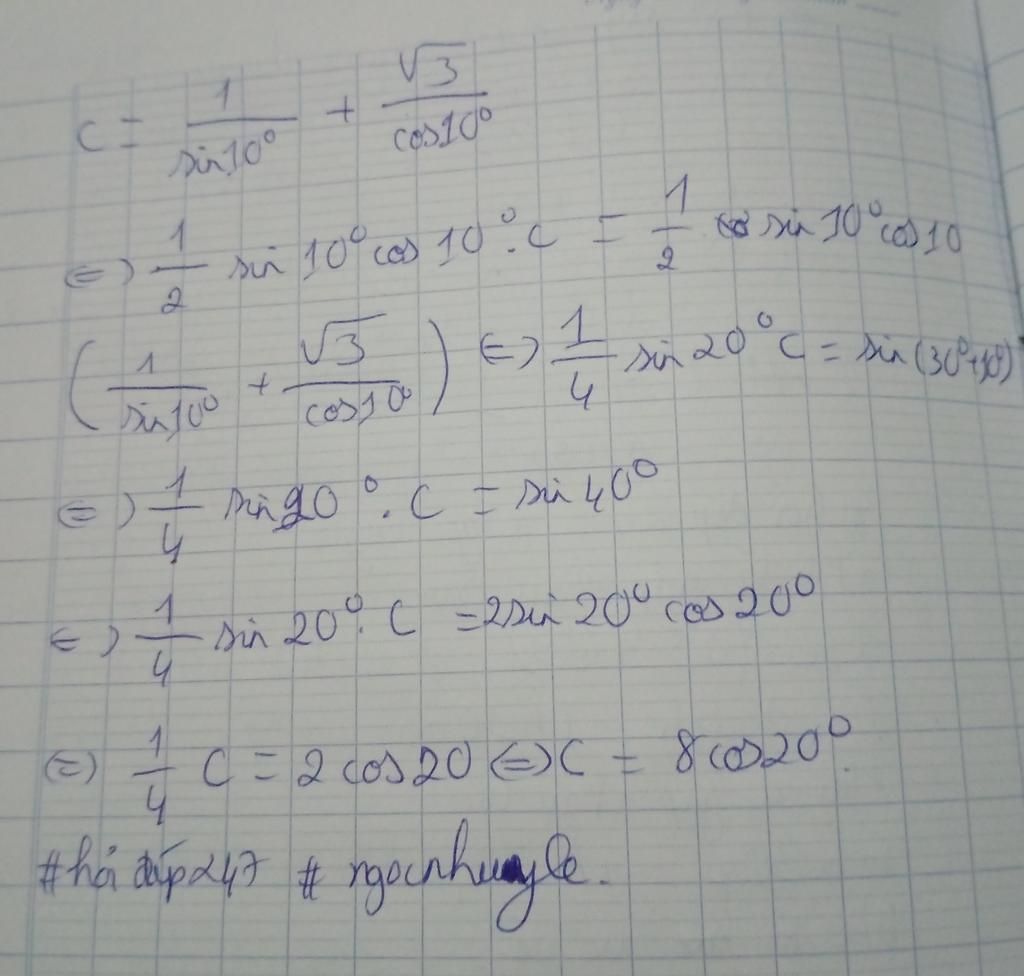 C = 1/sin10° + √3/cos10°
⇔ 1/2 sin 10° cos 10°. C = 1/2 sin 10° cos 10
(1/sin10° + √3/cos10°) ⇔ 1/4 sin 20° C = sin(30°+10°)
⇔ 1/4 sin 20°. C = sin 40°
⇔ 1/4 sin 20°. C = 2sin 20° cos 20°
⇔ 1/4 C = 2 cos 20 ⇔ C = 8 cos 20°.
#hỏi đáp247 # ngocnhuyle.